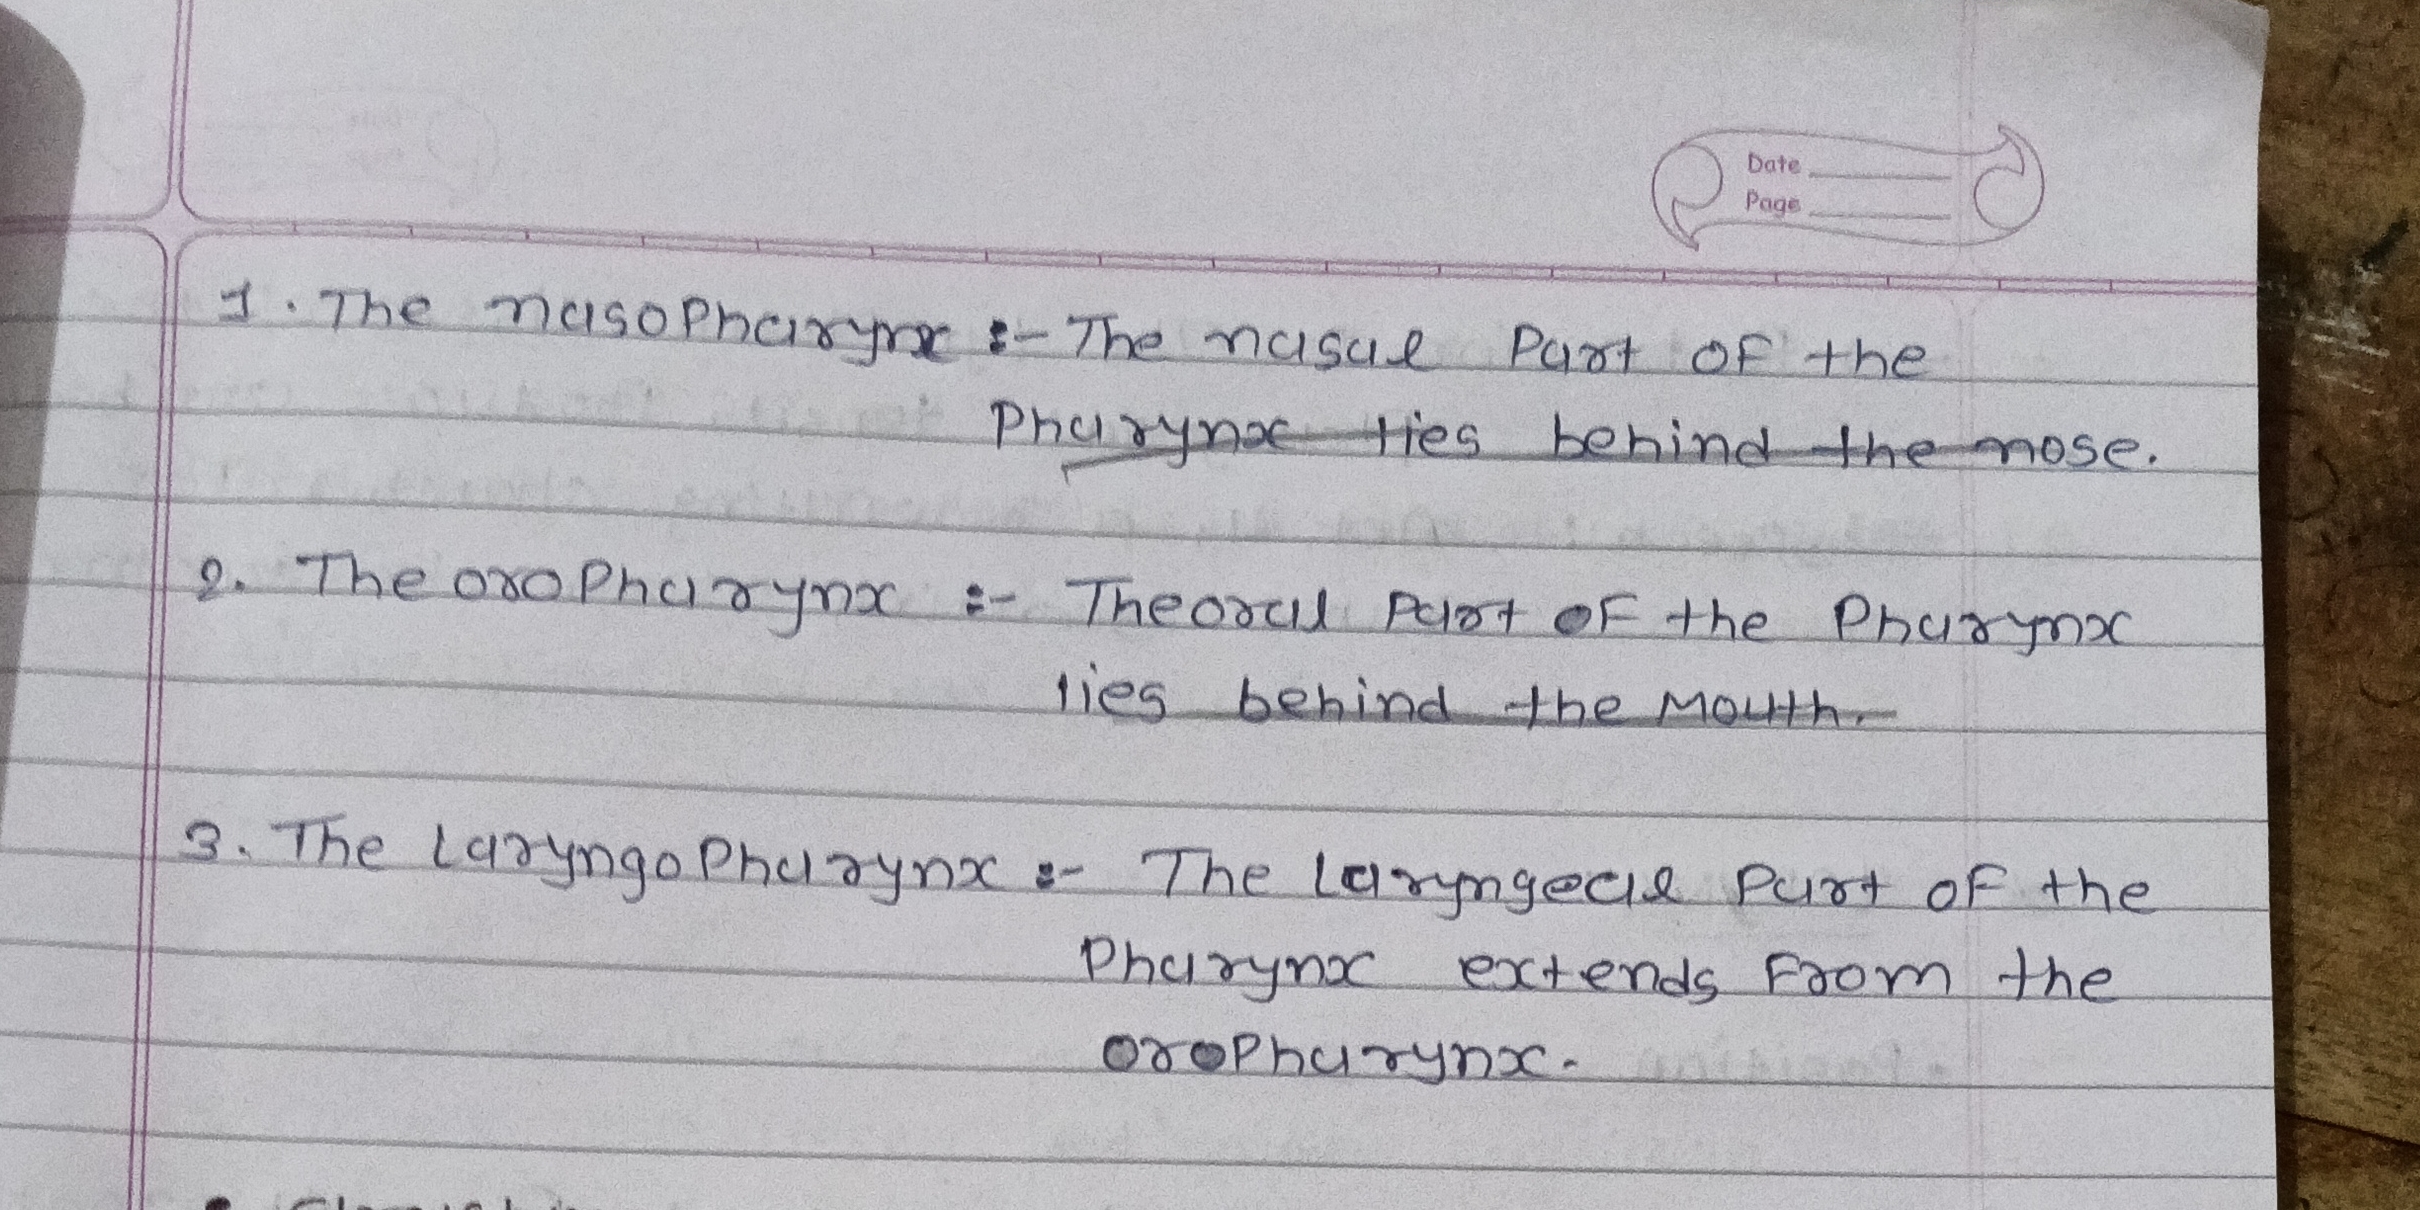 Date
Page
1. The nasopharynx :- The nasal Part OF the
Pharynx lies behind the nose.
2. The oropharynx :- The oral Part OF the Pharynx
lies behind the Mouth.
3. The Laryngopharynx :- The Laryngeal Part OF the
Pharynx extends From the
oropharynx.